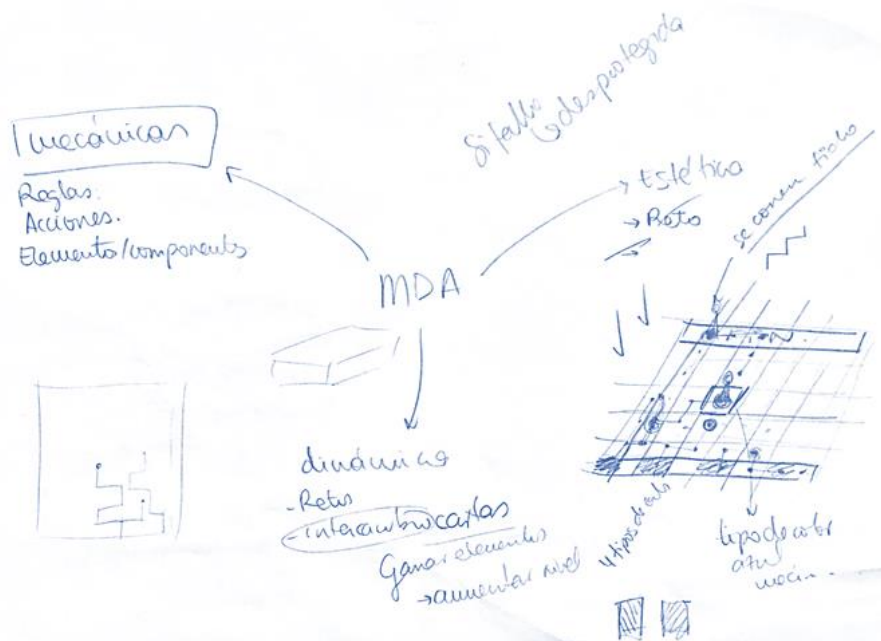 mecánicas
Reglas.
Acciones.
Elementos/componentes
MDA
Si fallo
desprotegida
→ Estética
→ Reto
→
se comen
dinámica
- Retos
- intercambio cartas
Ganar elementos
→ aumentar nivel
4 tipos de
tipo de color
azul